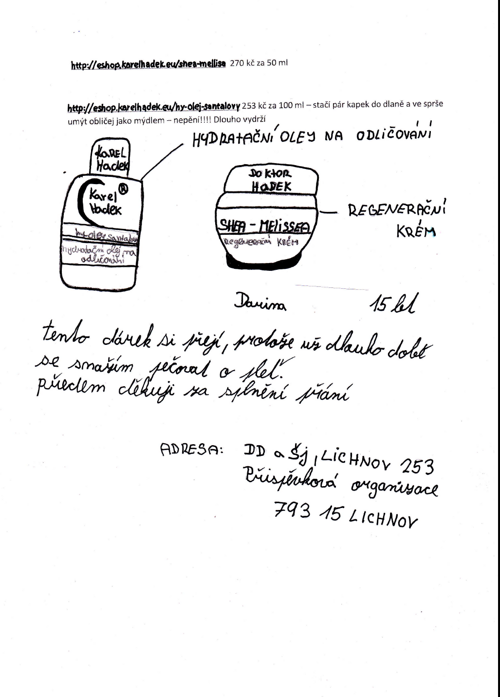 http://eshop.karelhadek.eu/shea-mellisa 270 kč za 50 ml
http://eshop.karelhadek.eu/hy-olej-santalovy 253 kč za 100 ml – stačí pár kapek do dlaně a ve sprše
umýt obličej jako mýdlem – nepění!!!! Dlouho vydrží
HYDRATAČNÍ OLEJ NA ODLIČOVÁNÍ
KAREL
Hadek
Karel ®
Hadek
hy-olej santalový
hydratační olej na
odličování
DOKTOR
HADEK
SHEA - MELISSEA
regenerační KRÉM
REGENERAČNÍ
KRÉM
Darina 15 let
tento dárek si přeji, protože už dlouho dobř
se snažím pečovat o pleť.
předem děkuji za splnění přání
ADRESA: DD a Šj, LICHNOV 253
Příspěvková organizace
793 15 LICHNOV